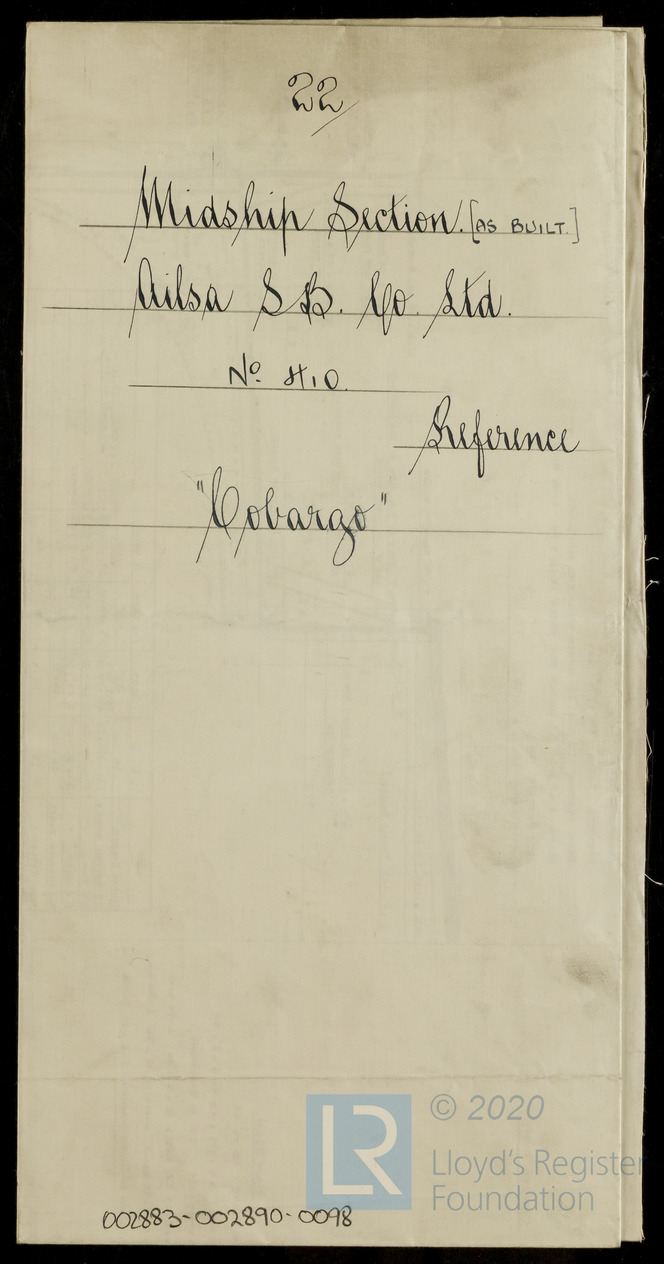 22/
Midship Section. [AS BUILT.]
Ailsa S B. Co. Ltd.
No. 410.
Reference
"Cobargo"
LR
© 2020
Lloyd's Register
Foundation
002883-002890-0098